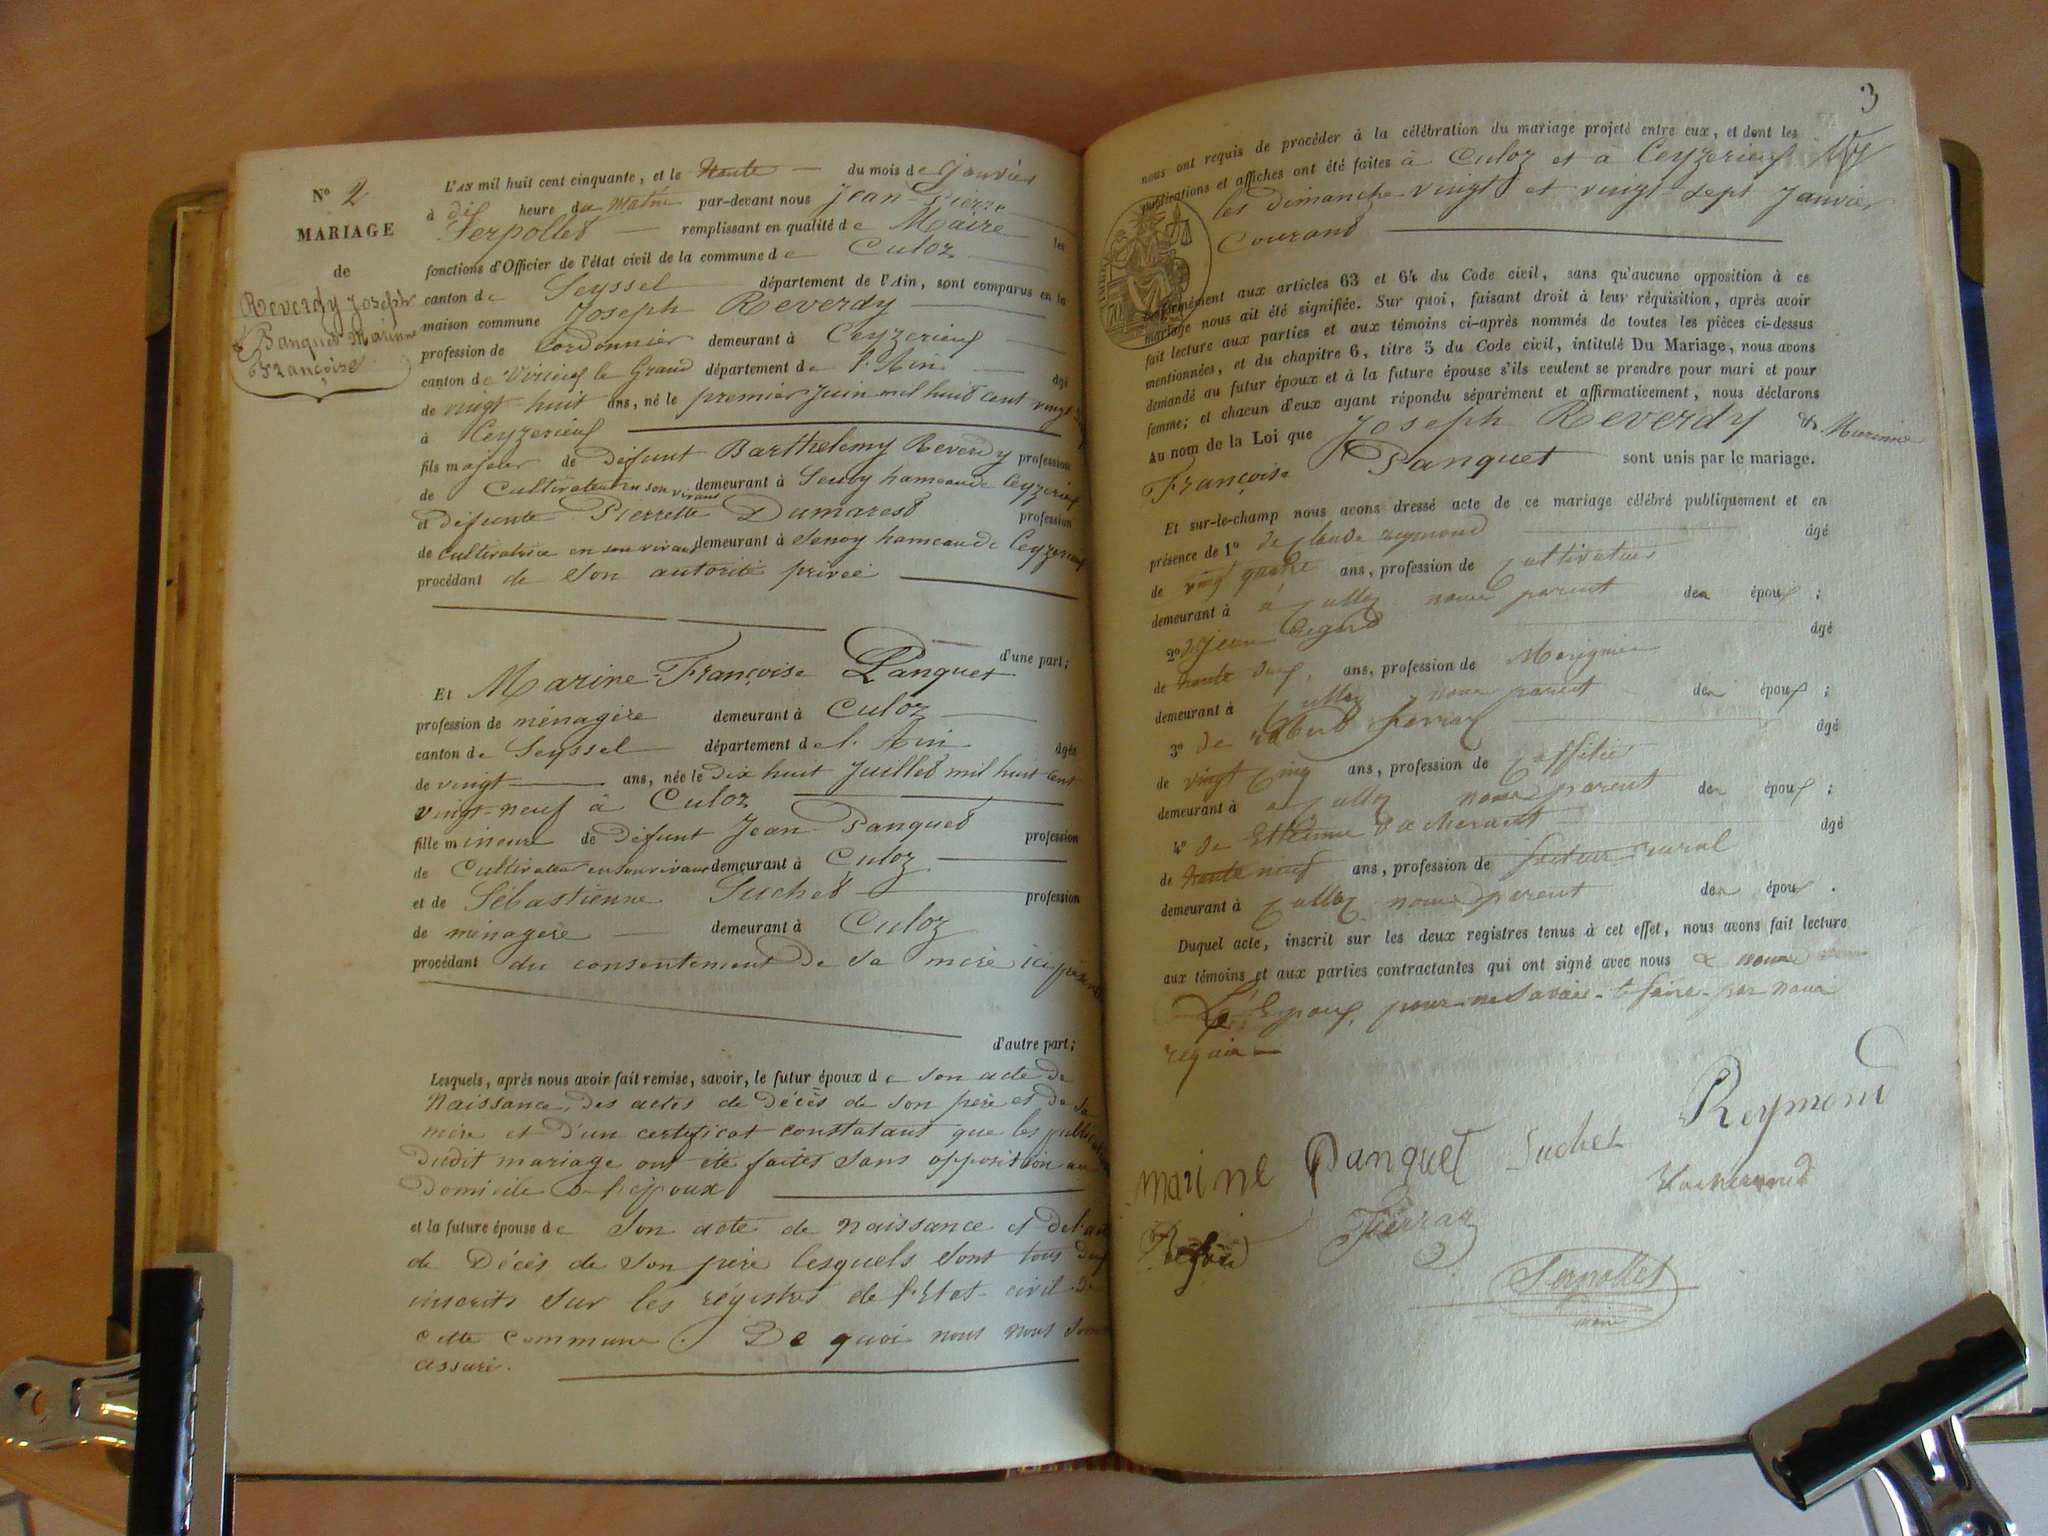 No 2
MARIAGE
de
Reverdy Joseph
& Panquet Marinne
Françoise
L'AN mil huit cent cinquante, et le trente du mois de Janvier
à dix heure du matin par-devant nous Jean Pierre
Serpollet remplissant en qualité de Maire les
fonctions d'Officier de l'état civil de la commune de Culoz
canton de Seyssel département de l'Ain, sont comparus en la
maison commune Joseph Reverdy
profession de Cordonnier demeurant à Ceyzerieux
canton de Virieux le Grand département de l'Ain âgé
de vingt huit ans, né le premier Juin mil huit cent vingt
à Ceyzerieux
fils majeur de défunt Barthelemy Reverdy profession
de Cultivateur en son vivant demeurant à hameau de Ceyzerieux
et défunte Pierrette Dumarest profession
de cultivatrice en son vivant demeurant à hameau de Ceyzerieux
procédant de son autorité privée
d'une part;
Et Marine-Françoise Panquet
profession de ménagère demeurant à Culoz
canton de Seyssel département de l'Ain âgée
de vingt ans, née le dix huit Juillet mil huit cent
vingt-neuf à Culoz
fille mineure de défunt Jean Panquet profession
de Cultivateur en son vivant demeurant à Culoz
et de Sébastienne Suchet profession
de ménagère demeurant à Culoz
procédant du consentement de sa mère ici présente
d'autre part;
Lesquels, après nous avoir fait remise, savoir, le futur époux de son acte de
Naissance, des actes de décès de son père et de sa
mère et d'un certificat constatant que les publications
dudit mariage ont été faites sans opposition au
domicile de l'époux
et la future épouse de son acte de naissance et de l'acte
de Décès de son père lesquels sont tous deux
inscrits sur les régistres de l'Etat-civil de
cette commune. De quoi nous nous sommes
assuré.
3
nous ont requis de procéder à la célébration du mariage projeté entre eux, et dont les
publications et affiches ont été faites à Culoz et à Ceyzerieux
les dimanche vingt et vingt-sept Janvier
Courant
conformément aux articles 63 et 64 du Code civil, sans qu'aucune opposition à ce
mariage nous ait été signifiée. Sur quoi, faisant droit à leur réquisition, après avoir
fait lecture aux parties et aux témoins ci-après nommés de toutes les pièces ci-dessus
mentionnées, et du chapitre 6, titre 5 du Code civil, intitulé Du Mariage, nous avons
demandé au futur époux et à la future épouse s'ils veulent se prendre pour mari et pour
femme; et chacun d'eux ayant répondu séparément et affirmativement, nous déclarons
Au nom de la Loi que Joseph Reverdy & Marinne
Françoise Panquet sont unis par le mariage.
Et sur-le-champ nous avons dressé acte de ce mariage célébré publiquement et en
présence de 1o de Claude reymond âgé
de vingt quatre ans, profession de Cultivateur
demeurant à a Culloz nonn parent des époux;
2o de Jean âgé
de trente deux ans, profession de
demeurant à Culloz nonn parent des époux;
3o de ferraz âgé
de vingt cinq ans, profession de
demeurant à a Culloz nonn parent des époux;
4o de Etienne Vacherand âgé
de trente neuf ans, profession de facteur rural
demeurant à Culloz nonn parent des époux.
Duquel acte, inscrit sur les deux registres tenus à cet effet, nous avons fait lecture
aux témoins et aux parties contractantes qui ont signé avec nous & nonn
L'Epoux, pour ne savoir le faire par nous
requis
Reymond
marine Panquet Suchet
Vacherand
Ferraz
Serpollet
maire